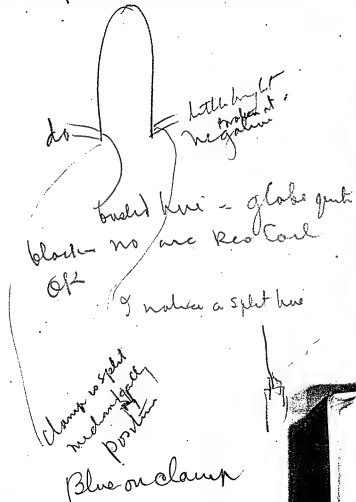 little bright
broken at
do negative
busted here = globe quite
black = no arc Res Coil
OK
I notice a split here
clamp is split
positive
Blue on clamp